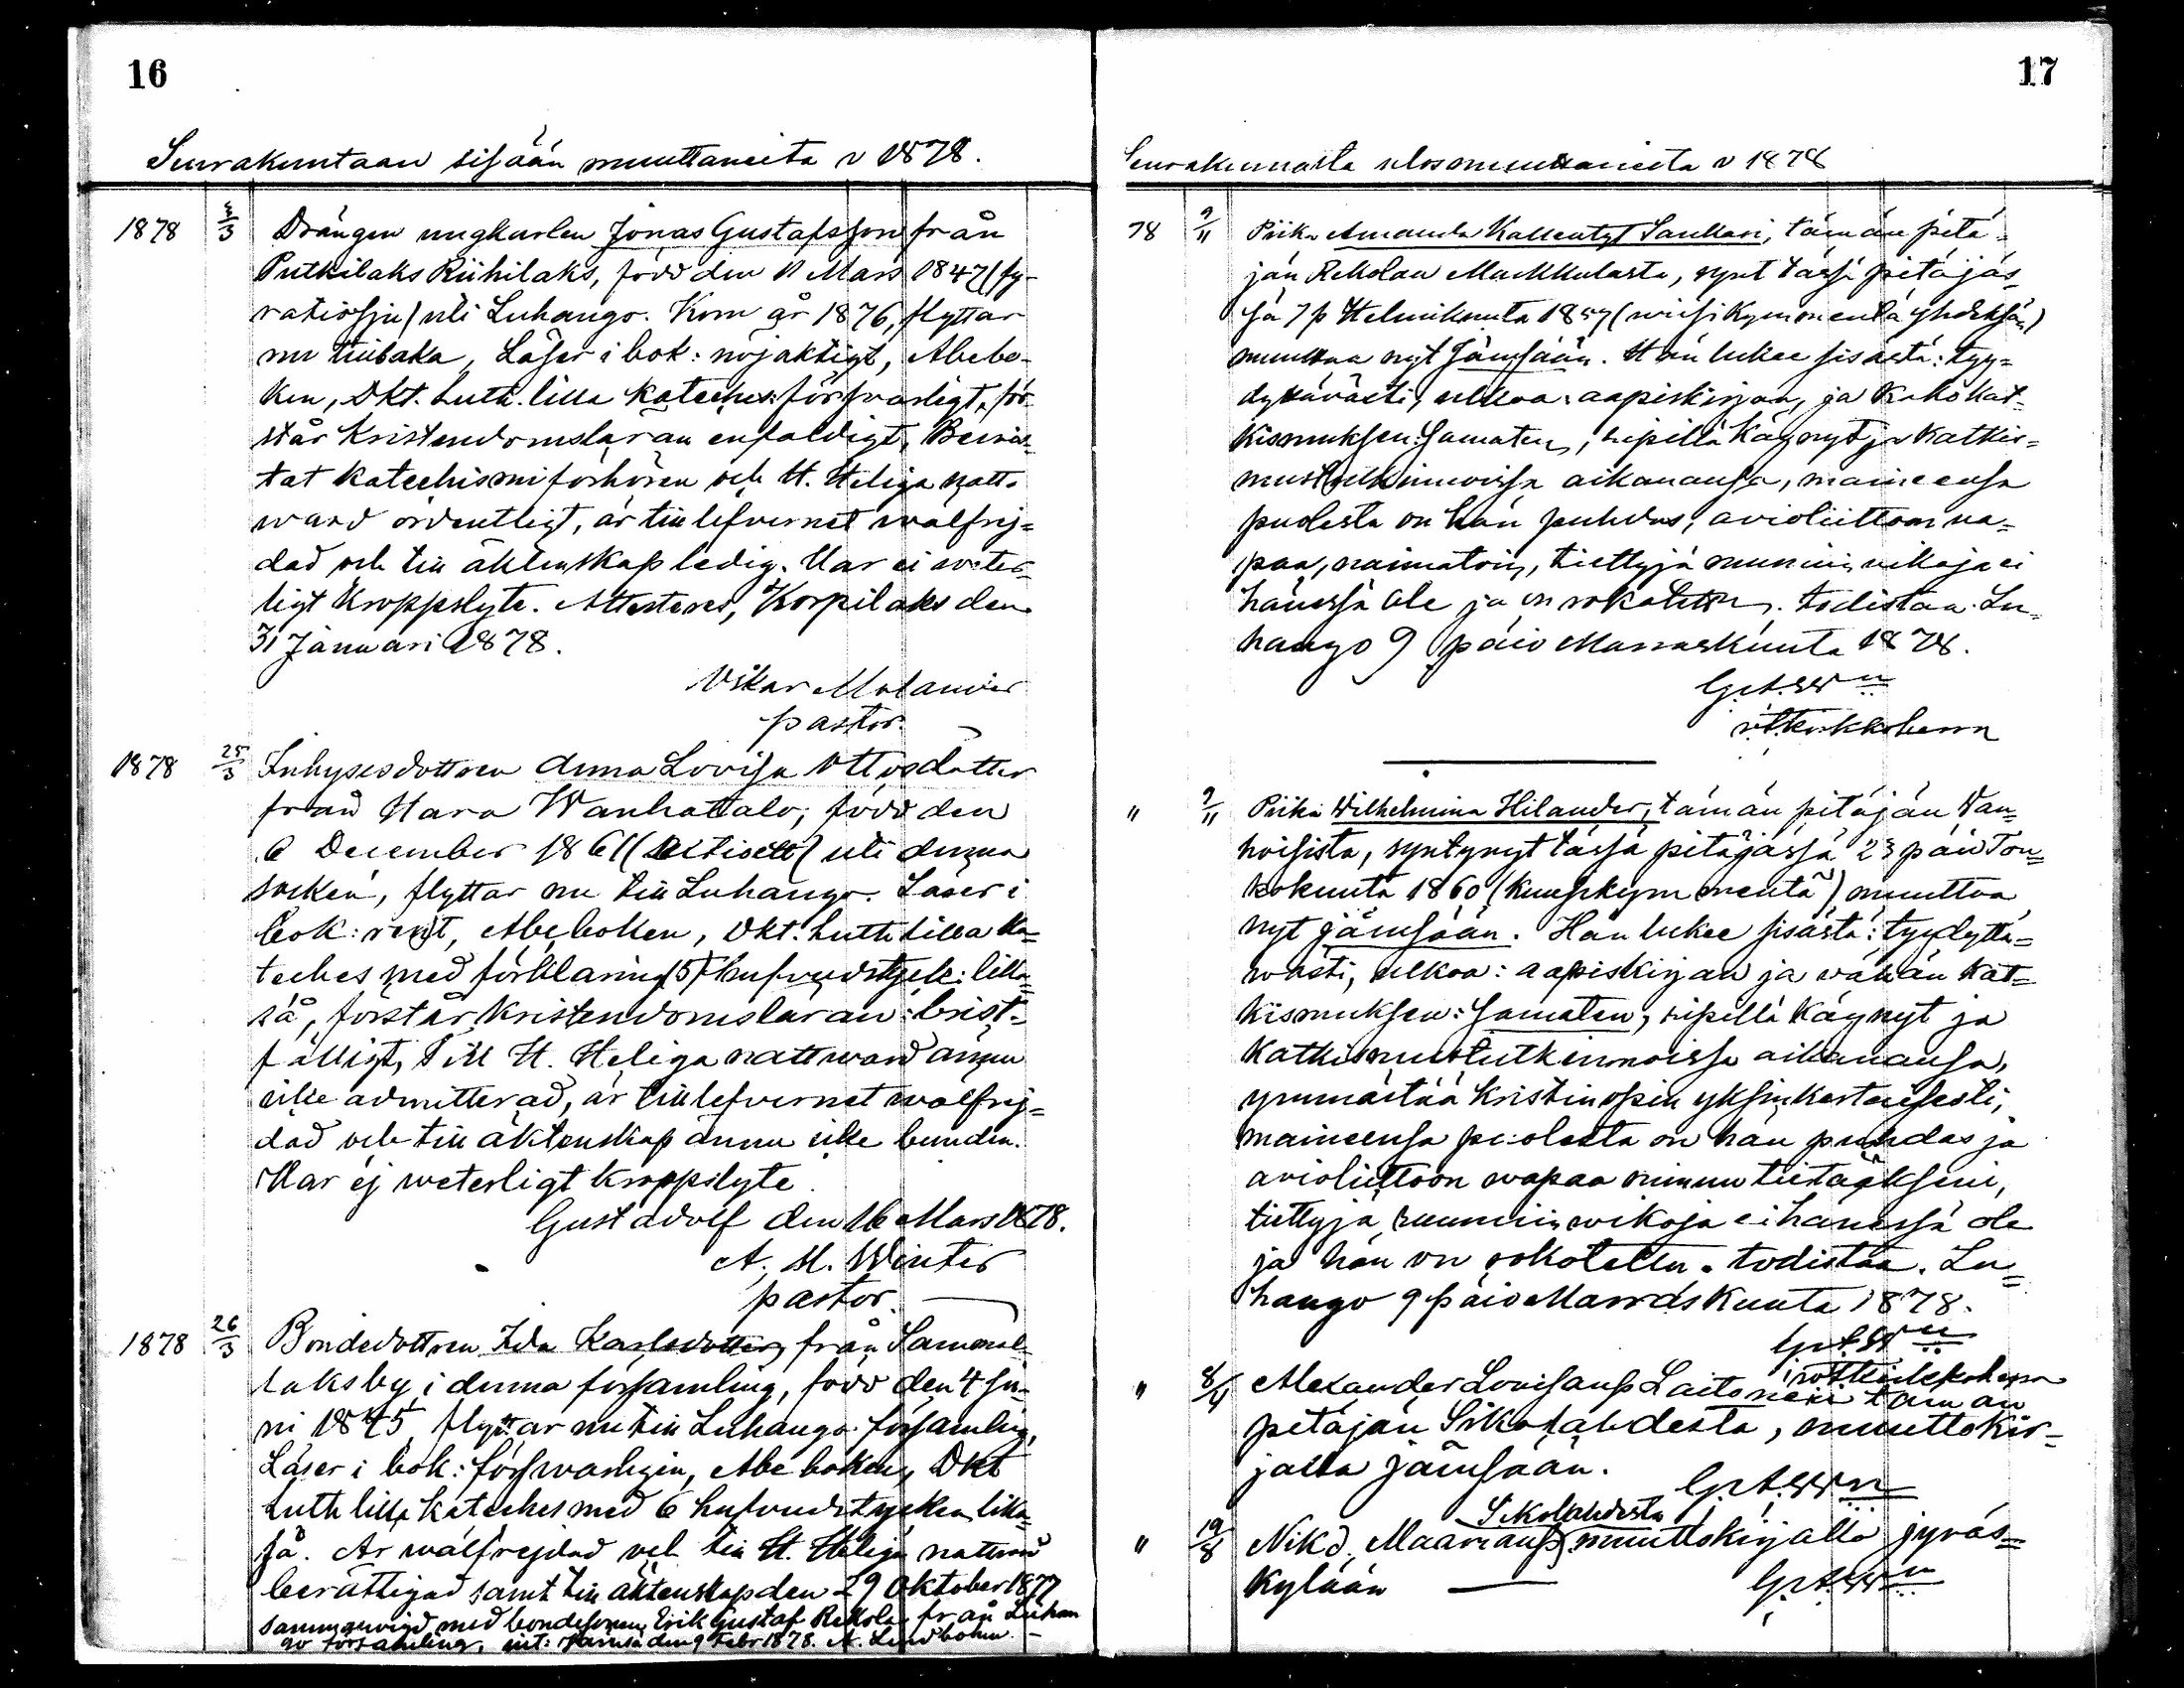 16
Seurakuntaan sisään muuttaneita v 1878.
1878 3/3 Drängen ungkarlen Jonas Gustafsson från
Putkilaks Riihilaks, född den 11 Mars 1847 (fy-
ratiosju) uti Luhango. Kom år 1876, flyttar
nu tillbaka, Läser i bok: nöjaktigt, Abebo-
ken, Dkt. Luth. lilla Kateches: försvarligt, för-
står Kristendomsläran enfaldigt, Bewis-
tat katechismiförhören och H. Heliga natt-
ward ordentligt, är till lefvernet wälfrej-
dad och till äktenskap ledig. Har ei veter-
ligt Kroppslyte. Attesteres, Korpilaks den
31 Januari 1878.
Oskar Molander
pastor.
1878 25/3 Inhysesdottren Anna Lovisa Ottosdotter
från Hara Wanhatalo; född den
6 December 1861 (sextioett) uti denna
socken, flyttar nu till Luhango. Läser i
bok: rent, Abeboken, Dkt. Luth lilla Ka-
teches med förklaring (5) Hufvudstyck: lika-
så, förstår Kristendomsläran: brist-
fälligt, Till H. Heliga nattward ännu
icke admitterad, är till lefvernet wälfrej-
dad och till äktenskap ännu icke bunden.
Har ej weterligt kroppslyte.
Gust Adolf den 16 Mars 1878.
A. H. Winter
pastor.
1878 26/3 Bondedottren Ida Karlsdotter, från
laksby i denna församling, född den 4 Ju-
ni 1845 flyttar nu till Luhango församling,
Läser i bok: förswarligen, Abe boken, Dkt
Luth lilla kateches med 6 hufvudstycken lika-
så. Är wälfrejdad och till H. Heliga nattward
berättigad samt till äktenskap den 29 Oktober 1877
sammanvigd med bondesonen Erik Gustaf Rekola från Luhan
go församling, int: Jämsä den 9 Febr 1878. A. Lindbohm.
17
Seurakunnasta ulosmuuttaneita v 1878
78 9/11 Piika Amanda Kallentyt Saukari, tämän pitä-
jän Rekolan Markkulasta, synt tässä pitäjäs-
sä 7 p Helmikuuta 1859 (wiisikymmentä yhdeksän)
muuttaa nyt Jämsään. Hän lukee sisästä: tyy-
dyttävästi, ulkoa: aapiskirjan, ja koko kat-
kismuksen: Samaten, ripillä käynyt ja katkis-
mustutkinnoissa aikanansa, maineensa
puolesta on hän puhdas, avioliittoon wa-
paa, naimaton, tiettyjä ruumiin vikoja ei
hänessä ole ja on rokotettu. todistaa. Lu-
hango 9 päiv Marraskuuta 1878.
G. A. W:n
v. t. kirkkoherra
" 9/11 Piika Wilhelmina Hilander, tämän pitäjän Wan-
hoisista, syntynyt tässä pitäjässä 23 päiv Tou-
kokuuta 1860 (Kuusikymmentä) muuttaa
nyt Jämsään. Hän lukee sisästä: tyydyttä-
wästi, ulkoa: aapiskirjan ja vähän Kat-
kismuksen: Samaten, ripillä käynyt ja
Katkismustutkinnoissa aikanansa,
ymmärtää Kristinopin yksinkertaisesti,
maineensa puolesta on hän puhdas ja
avioliittoon wapaa minun tietääkseni,
tiettyjä ruumiin wikoja ei hänessä ole
ja hän on rokotettu. todistaa. Lu-
hango 9 päiv Marraskuuta 1878.
G. A. W:n
v. t. kirkkoherra
" 8/4 Alexander Lovisanp Laitoneni tämän
pitäjän Sikolahdesta, muuttokir-
jalla Jämsään. G. A. W:n
Sikolahdesta
" 19/8 Nikd. Maarianp muuttokirjalla Jyväs-
Kylään G. A. W:n